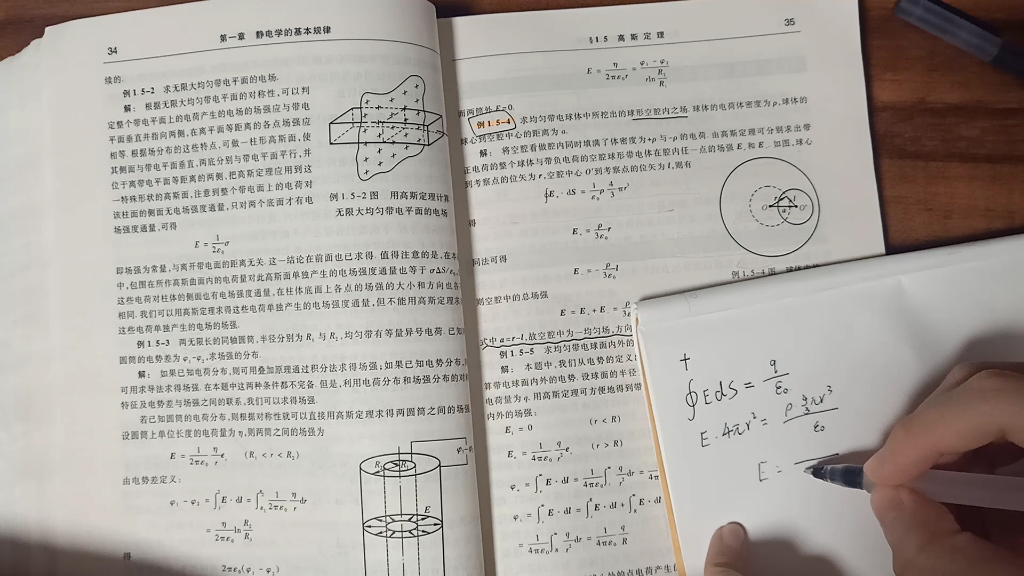 34
第一章 静电学的基本规律
续的.
例 1.5-2 求无限大均匀带电平面的电场.
解: 根据无限大均匀带电平面的对称性,可以判
定整个带电平面上的电荷产生的电场的场强应与带电
平面垂直并指向两侧,在离平面等距离的各点场强应
相等. 根据场分布的这些特点,可做一柱形高斯面,使
其侧面与带电平面垂直,两底分别与带电平面平行,并
位于离带电平面等距离的两侧,把高斯定理应用到这
一特殊形状的高斯面,注意到整个带电面上的电荷对
该柱面的侧面无电场强度通量,只对两个底面才有电
场强度通量,可得
例 1.5-2 图 用高斯定理计算
无限大均匀带电平面的电场
E = \frac{1}{2ε₀}σ
即场强为常量,与离开带电面的距离无关. 这一结论在前面也已求得. 值得注意的是,在本
中,包围在所作高斯曲面内的电荷量对此高斯面单独产生的电场强度通量也等于 σΔS/ε₀
这些电荷对柱体的侧面也有电场强度通量,在柱体底面上各点的场强的大小和方向也各
相同. 我们可以用高斯定理求得这些电荷单独产生的电场强度通量,但不能用高斯定理求
这些电荷单独产生的电场的场强.
例 1.5-3 两无限长的同轴圆筒,半径分别为 R₁ 与 R₂,均匀带有等量异号电荷. 已知
圆筒的电势差为 φ₁-φ₂,求场强的分布.
解: 如果已知电荷分布,则可用叠加原理通过积分法求场强;如果已知电势分布,
可用求导法求场强. 在本题中这两种条件都不完备. 但是,利用电荷分布和场强分布的对
特征及电势差与场强之间的联系,我们可以求得场强.
若已知圆筒的电荷分布,则根据对称性就可以直接用高斯定理求得两圆筒之间的场强
设圆筒上单位长度的电荷量为 η,则两筒之间的场强为
E = \frac{1}{2πε₀} \frac{η}{r} eᵣ (R₁ < r < R₂)
由电势差定义:
φ₁ - φ₂ = ∫E·dl = ∫\frac{1}{2πε₀} \frac{η}{r} dr
= \frac{η}{2πε₀} ln\frac{R₂}{R₁}
得
2πε₀(φ₁-φ₂)
R₂
R₁
E
§1.5 高斯定理
35
E = \frac{η}{2πε₀r} = \frac{φ₁-φ₂}{r ln\frac{R₂}{R₁}}
而两筒外 E=0.
例 1.5-4 求均匀带电球体中所挖出的球形空腔内之场. 球体的电荷体密度为 ρ,球体的
球心到空腔中心的距离为 a.
解: 将空腔看做腔内同时填满了体密度为+ρ与-ρ的电荷. 由高斯定理可分别求出带
正电荷的整个球体与带负电荷的空腔球形带电体在腔内任一点的场强 E₊ 和 E₋. 如图,球心
到考察点的位矢为 r,空腔中心 O′到考察点的位矢为 l,则有
∮E₊·dS = \frac{1}{ε₀} ρ \frac{4}{3} πr³
得
E₊ = \frac{ρ}{3ε₀} r
同法可得
E₋ = -\frac{ρ}{3ε₀} l
则空腔中的总场强
E = E₊ + E₋ =
O
O′
r
l
a
例 1.5-4 图
式中 a=r-l,故空腔中为一均匀场,方向
例 1.5-5 求均匀带电球面内外的
解: 本题中,我们从电势的定义
算带电球面内外的电势. 设球面的半径
电荷量为 q. 用高斯定理可方便地得到带
内外的场强:
Eᵢ = 0 (r < R)
Eₑ = \frac{1}{4πε₀} \frac{q}{r²} eᵣ (r > R)
φₑ = ∫E·dl = \frac{1}{4πε₀} ∫\frac{q}{r²} dr =
φᵢ = ∫E·dl = ∫Eᵢ·dl + ∫E·dl
= \frac{1}{4πε₀} ∫\frac{q}{r²} dr = \frac{1}{4πε₀} \frac{q}{R}
∮EdS = \frac{q}{ε₀}
E·4πr² = \frac{ρ \frac{4}{3} πr³}{ε₀}
E =